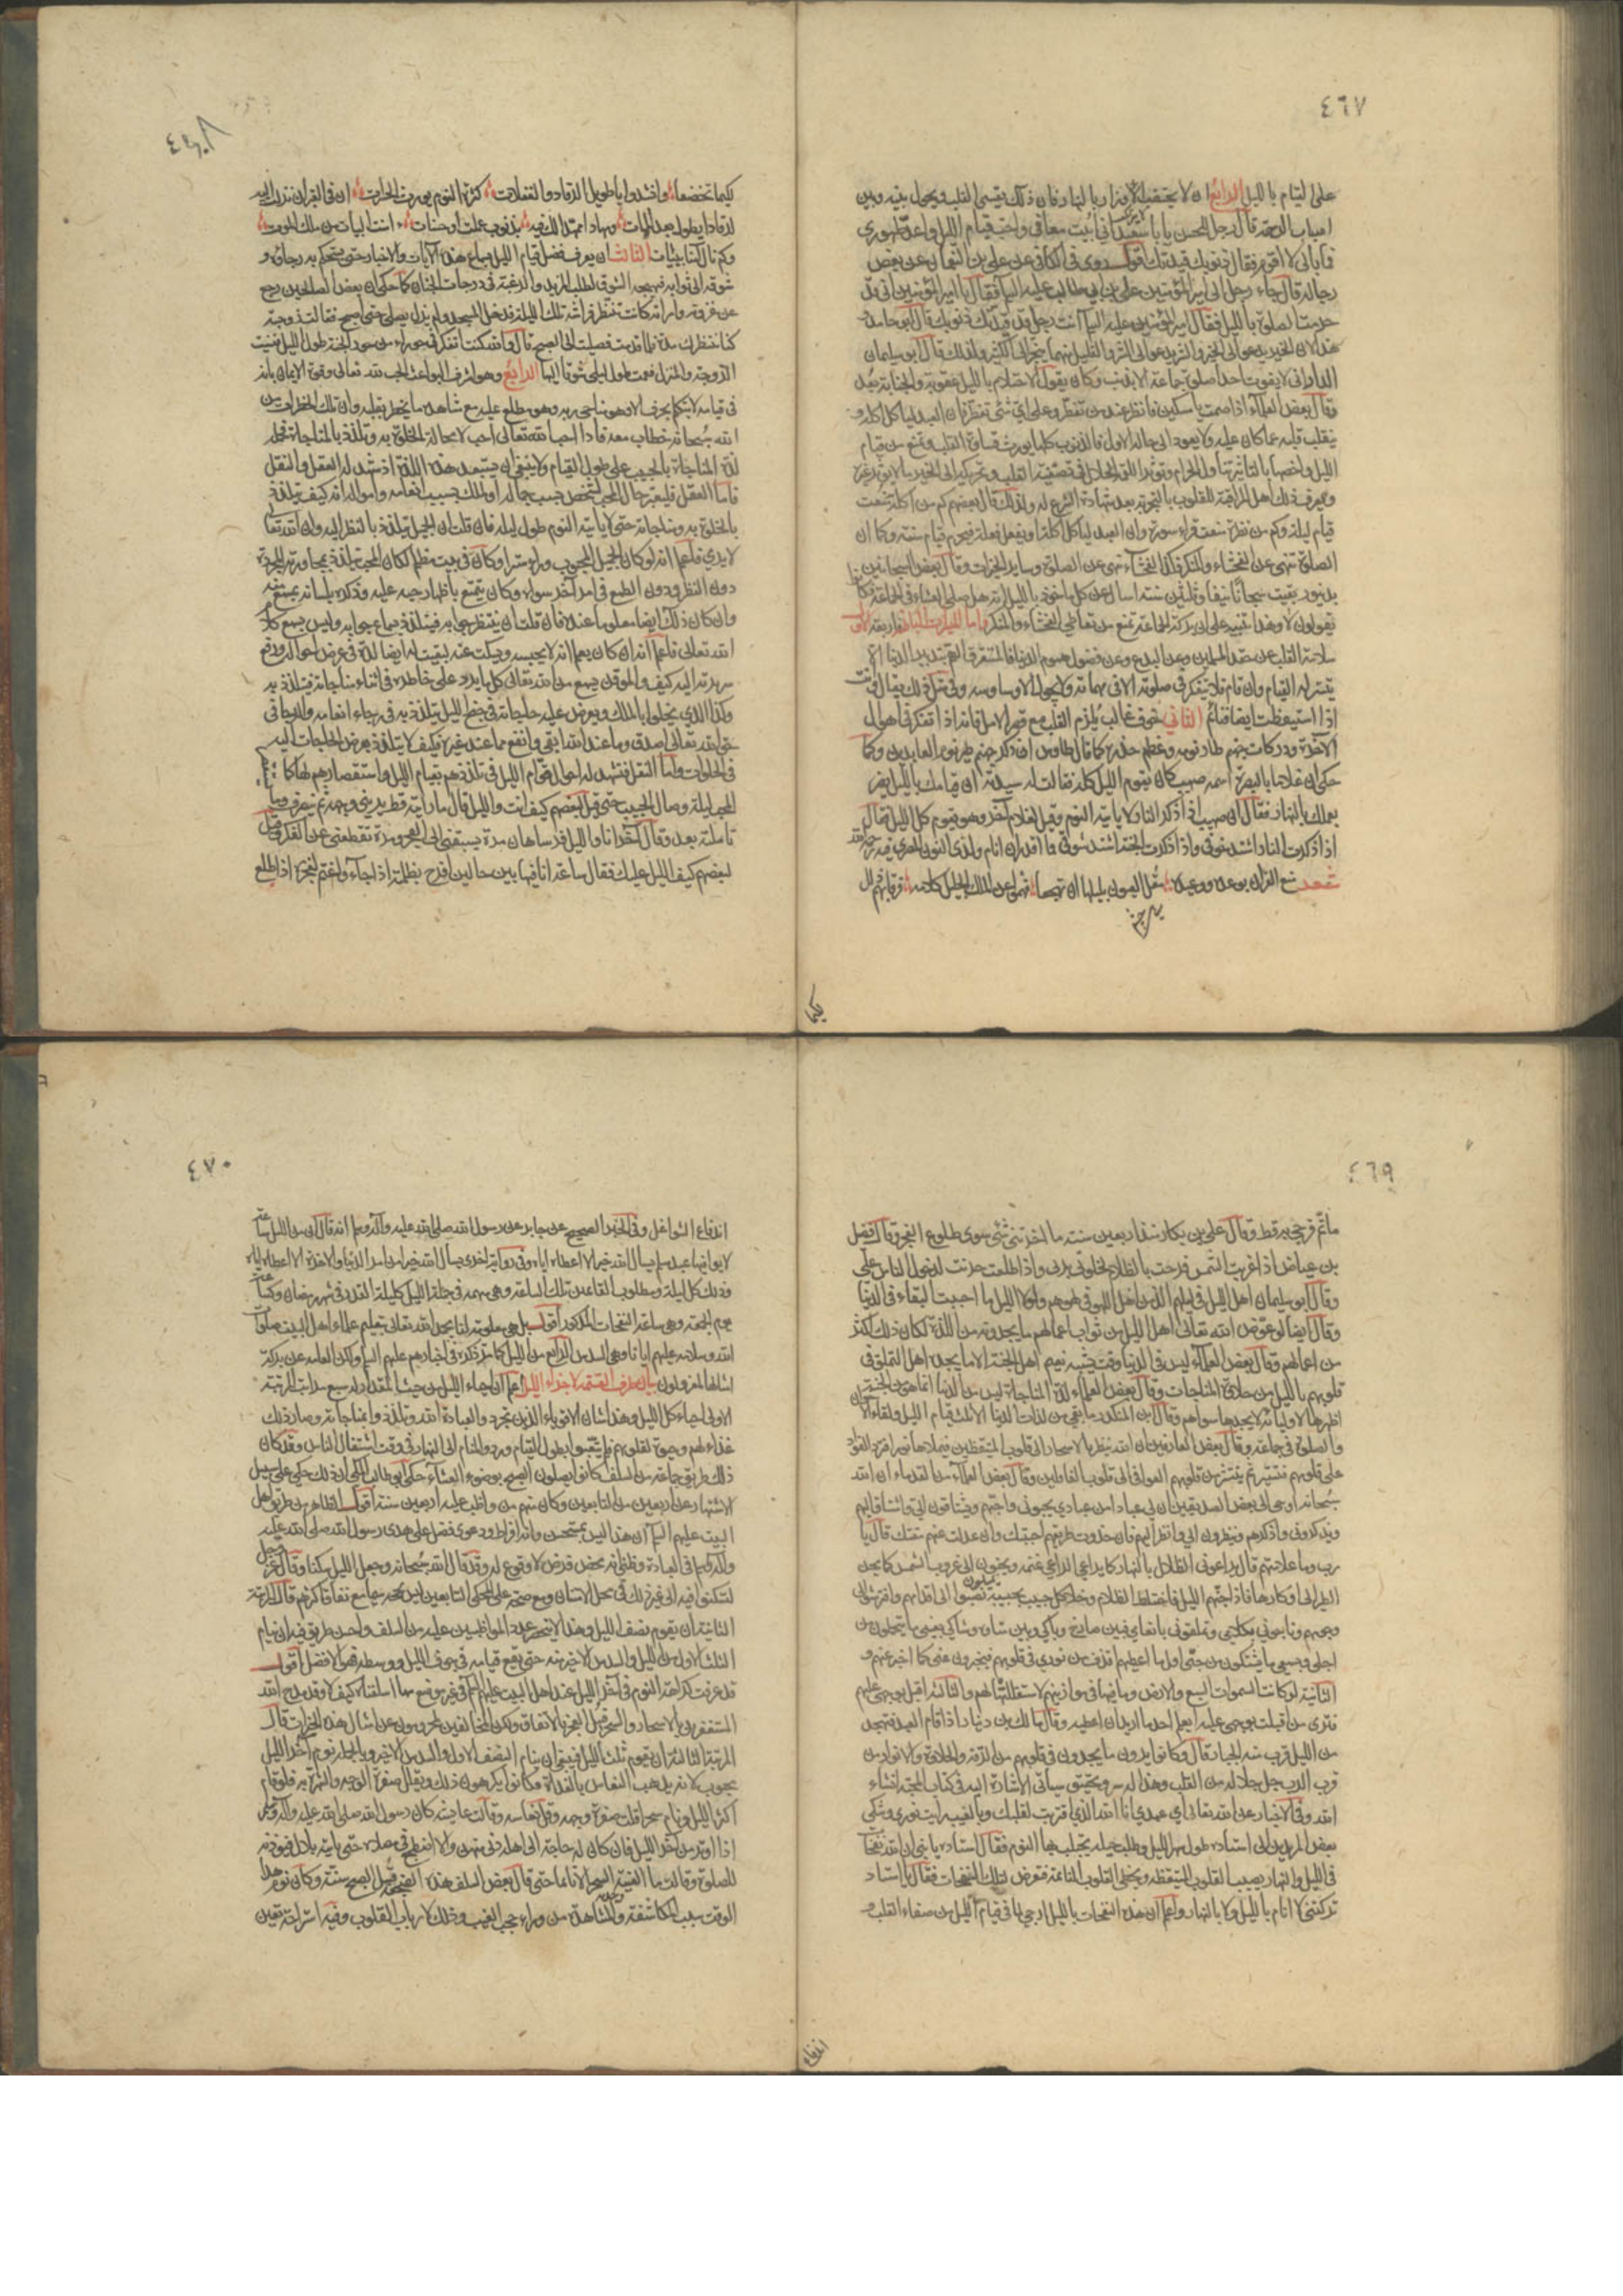 ٤٦٧
على القيام بالليل الرابع ان لا يحتقب الاوزار بالنهار فان ذلك يقسي القلب ويحول بينه وبين
اسباب الرحمة قال رجل للحسن يا با سعيد اني ابيت معافى واحب قيام الليل واعد طهوري
فما بالي لا اقوم فقال ذنوبك قيدتك اقول روى في الكافي عن علي بن النعمان عن بعض
رجاله قال جاء رجل الى امير المؤمنين علي بن ابي طالب عليه السلم فقال يا امير المؤمنين اني قد
حرمت الصلوة بالليل فقال امير المؤمنين عليه السلم انت رجل قد قيدتك ذنوبك قال ابو حامد و
هذا لان الخير يدعو الى الخير والشر يدعو الى الشر والقليل منهما يجر الى الكثير ولذلك قال ابو سليمان
الداراني لا يفوت احدا صلوة جماعة الا بذنب وكان يقول الاحتلام بالليل عقوبة والجنابة بعد
وقال بعض العلماء اذا صمت يا مسكين فانظر عند من تفطر وعلى اي شئ تفطر فان العبد لياكل اكلة و
ينقلب قلبه عما كان عليه ولا يعود الى حاله الاول فالذنوب كلها يورث قساوة القلب وتمنع من قيام
الليل واخصها بالتاثير تناول الحرام وتؤثر اللقمة الحلال في تصفية القلب وتحريكه الى الخير ما لا يؤثر غيره
ويعرف ذلك اهل المراقبة للقلوب بالتجربة بعد شهادة الشرع له ولذلك قال بعضهم كم من اكلة منعت
قيام ليلة وكم من نظرة منعت قراءة سورة وان العبد لياكل اكلة او يفعل فعلة فيحرم قيام سنة وكما ان
الصلوة تنهى عن الفحشاء والمنكر فكذا الفحشاء تنهى عن الصلوة وساير الخيرات وقال بعض السجانين
بدينور بقيت سجانا نيفا وثلثين سنة اسال عن كل ماخوذ بالليل انه هل صلى العشاء في الجماعة فكانوا
يقولون لا وهذا تنبيه على ان بركة الجماعة تمنع من تعاطي الفحشاء والمنكر واما الميسرات الباطنة فاربعة الاول
سلامة القلب عن حقد المسلمين وعن البدع وعن فضول هموم الدنيا فالمستغرق الهم بتدبير الدنيا لا
يتيسر له القيام وان قام فلا يتفكر في صلوته الا في مهماته ولا يجول الا وساوسه وفي مثل ذلك يقال وانت
اذا استيقظت ايضا فنائم الثاني خوف غالب يلزم القلب مع قصر الامل فانه اذا تفكر في اهوال
الآخرة ودركات جهنم طار نومه وعظم حذره كما قال طاوس ان ذكر جهنم طير نوم العابدين وكما
حكى ان غلاما بالبصرة اسمه صهيب كان يقوم الليل كله فقالت له سيدته ان قيامك بالليل يضر
بعملك بالنهار فقال ان صهيبا اذا ذكر النار لا ياتيه النوم وقيل لغلام آخر وهو يقوم كل الليل فقال
اذا ذكرت النار اشتد خوفي واذا ذكرت الجنة اشتد شوقي فلا اقدر ان انام ولذي النون المصري فيه رحمه الله
شعر منع القران بوعده ووعيده مقل العيون بليلها ان تهجعا فهموا عن الملك الجليل كلامه فرقابهم ذلت
اليه
يكما
٤٦٨
يكما تخضعا وانشدوا يا طويل الرقاد والغفلات كثرة النوم يورث الحسرات ان في القبر ان نزلت اليه
لرقادا يطول بعد الممات ومهادا ممهدا لك فيه بذنوب عملت او حسنات اامنت البيات من ملك الموت
وكم نال آمنا ببيات الثالث ان يعرف فضل قيام الليل بسماع هذه الآيات والاخبار حتى يستحكم به رجاؤه و
شوقه الى ثوابه فيهيجه الشوق لطلب المزيد والرغبة في درجات الجنان كما حكى ان بعض الصالحين رجع
من غزوته وامراته كانت تنتظر فراشه تلك الليلة فدخل المسجد ولم يزل يصلي حتى اصبح فقالت زوجته
كنا ننتظرك مدة فلما قدمت صليت الى الصبح قال والله كنت اتفكر في حوراء من حور الجنة طول الليل فنسيت
الزوجة والمنزل فقمت طول ليلي شوقا اليها الرابع وهو اشرف البواعث الحب لله تعالى وقوة الايمان بانه
في قيامه لا يتكلم بحرف الا وهو مناجي ربه وهو مطلع عليه مع مشاهدة ما يخطر بقلبه وان تلك الخطرات من
الله سبحانه خطاب معه فاذا احب الله تعالى احب لا محالة الخلوة به وتلذذ بالمناجاة فتحمله
لذة المناجاة بالحبيب على طول القيام ولا ينبغي ان يستبعد هذه اللذة اذ شهد له العقل والنقل
فاما العقل فليعتبر حال المحب لشخص بسبب جماله او لملك بسبب انعامه وامواله انه كيف يتلذذ
بالخلوة به ومناجاته حتى لا ياتيه النوم طول ليله فان قلت ان الجميل يتلذذ بالنظر اليه وان الله تعالى
لا يرى فاعلم انه لو كان الجميل المحبوب وراء ستر او كان في بيت مظلم لكان المحب يتلذذ بمجاورته المجردة
دون النظر ودون الطمع في امر آخر سواه وكان يتنعم باظهار حبه عليه وذكره بلسانه بمسمع منه
وان كان ذلك ايضا معلوما عنده فان قلت ان ينتظر جوابه فيتلذذ بسماع جوابه وليس يسمع كلام
الله تعالى فاعلم انه ان كان يعلم انه لا يجيبه ويسكت عنه لبقيت له ايضا لذة في عرض احواله ورفع
سريرته اليه كيف والموقن يسمع من الله تعالى كل ما يرد على خاطره في اثناء مناجاته فيتلذذ به
وكذا الذي يخلوا بالملك ويعرض عليه حاجاته في جنح الليل يتلذذ به في رجاء انعامه والرجاء في
حق الله تعالى اصدق وما عند الله ابقى وانفع مما عند غيره فكيف لا يتلذذ بعرض الحاجات اليه
في الخلوات واما النقل فتشهد له احوال قوام الليل في تلذذهم بقيام الليل واستقصارهم له كما
المحب ليلة وصال الحبيب حتى قيل لبعضهم كيف انت والليل قال ما راعيته قط يريني وجهه ثم ينصرف وما
تاملته بعد وقال آخر انا والليل فرسا رهان مرة يسبقني الى الفجر ومرة تقطعني عن الفكر وقيل
لبعضهم كيف الليل عليك فقال ساعة انا فيها بين حالين افرح بظلمته اذا جاء واغتم لفجره اذا طلع
٤٦٩
ما تم فرحي به قط وقال علي بن بكار منذ اربعين سنة ما احزنني شئ سوى طلوع الفجر وقال فضيل
بن عياض اذا غربت الشمس فرحت بالظلام لخلوتي بربي واذا طلعت حزنت لدخول الناس علي
وقال ابو سليمان اهل الليل في ليلهم الذ من اهل اللهو في لهوهم ولولا الليل ما احببت البقاء في الدنيا
وقال ايضا لو عوض الله تعالى اهل الليل من ثواب اعمالهم ما يجدونه من اللذة لكان ذلك اكثر
من اعمالهم وقال بعض العلماء ليس في الدنيا وقت يشبه نعيم اهل الجنة الا ما يجده اهل التملق في
قلوبهم بالليل من حلاوة المناجات وقال بعض العلماء لذة المناجاة ليس من الدنيا انما هو من الجنة
اظهرها لاوليائه لا يجدها سواهم وقال ابن المنكدر ما بقي من لذات الدنيا الا ثلث قيام الليل ولقاء الاخوان
والصلوة في جماعة وقال بعض العارفين ان الله ينظر بالاسحار الى قلوب المتيقظين فيملاها نورا فترد الفوائد
على قلوبهم فتستنير ثم ينتشر من قلوبهم العوافي الى قلوب الغافلين وقال بعض العلماء من القدماء ان الله
سبحانه اوحى الى بعض الصديقين ان لي عبادا من عبادي يحبوني واحبهم ويشتاقون الي واشتاق اليهم
ويذكروني واذكرهم وينظرون الي وانظر اليهم فان حذوت طريقهم احببتك وان عدلت عنهم مقتك قال يا
رب وما علامتهم قال يراعون الظلال بالنهار كما يراعي الراعي غنمه ويحنون الى غروب الشمس كما يحن
الطير الى اوكارها فاذا جنهم الليل فاختلط الظلام وخلا كل حبيب بحبيبه نصبوا الى اقدامهم وافترشوا الي
وجوههم وناجوني بكلامي وتملقوني بانعامي فبين صارخ وباكي وبين متاوه وشاكي بعيني ما يتحملون من
اجلي وبسمعي ما يشتكون من حبي اول ما اعطيهم اقذف من نوري في قلوبهم فيخبرون عني كما اخبر عنهم و
الثانية لو كانت السموات السبع والارض وما فيها في موازينهم لاستقللتها لهم والثالثة اقبل بوجهي عليهم
فترى من اقبلت بوجهي عليه ايعلم احد ما اريد ان اعطيه وقال مالك بن دينار اذا قام العبد يتهجد
من الليل قرب منه الجبار قال وكانوا يرون ما يجدون في قلوبهم من الرقة والحلاوة والانوار من
قرب الرب جل جلاله من القلب وهذا له سر وتحقيق سياتي الاشارة اليه في كتاب المحبة انشاء
الله وفي الاخبار عن الله تعالى اي عبدي انا الله الذي اقتربت لقلبك وبالغيب رايت نوري وشكى
بعض المريدين الى استاده طول سهر الليل وطلب حيلة يجتلب بها النوم فقال استاده يا بني ان لله نفحات
في الليل والنهار يصيب القلوب المتيقظة ويخطي القلوب النائمة فتعرض لتلك النفحات فقال يا استاد
تركتني لا انام بالليل ولا بالنهار واعلم ان هذه النفحات بالليل ارجى لما في قيام الليل من صفاء القلب و
اندفاع
٤٧٠
اندفاع الشواغل وفي الخبر الصحيح عن جابر عن رسول الله صلى الله عليه وآله وسلم انه قال ان من الليل ساعة
لا يوافيها عبد مسلم يسال الله خيرا الا اعطاه اياه وفي رواية اخرى يسال الله خيرا من امر الدنيا والاخرة الا اعطاه اياه
وذلك كل ليلة ومطلوب القائمين تلك الساعة وهي مبهمة في جملة الليل كليلة القدر في شهر رمضان وكساعة
يوم الجمعة وهي ساعة النفحات المذكورة اقول بل هي معلومة لنا بحمد الله تعالى بتعليم علماء اهل البيت صلوات
الله وسلامه عليهم ايانا وهي السدس الرابع من الليل كما مر ذكره في اخبارهم عليهم السلم ولكن العامة عن بركة
امثالها معزولون بيان طرق القسمة لاجزاء الليل اعلم ان احياء الليل من حيث المقدار له سبع مراتب المرتبة
الاولى احياء كل الليل وهذا شان الاقوياء الذين تجردوا لعبادة الله وتلذذوا بمناجاته وصار ذلك
غذاء لهم وحيوة لقلوبهم فلم يتعبوا بطول القيام وردوا المنام الى النهار في وقت اشتغال الناس وقد كان
ذلك طريق جماعة من السلف كانوا يصلون الصبح بوضوء العشاء حكى ابو طالب المكي ان ذلك حكي على سبيل
الاشتهار عن اربعين من التابعين وكان منهم من واظب عليه اربعين سنة اقول الظاهر من طريق اهل
البيت عليهم السلم ان هذا ليس بمستحسن وانه افراط ودعوى فضل على هدى رسول الله صلى الله عليه
وآله وسلم في العبادة وظني انه محض فرض لا وقوع له وقد قال الله سبحانه وجعل الليل سكنا وقال عز وجل
لتسكنوا فيه الى غير ذلك في محل الامتنان ومع صحته على ما حكي التابعين ليس بحجة سيما مع نفاق اكثرهم قال المرتبة
الثانية ان يقوم نصف الليل وهذا لا ينحصر عدد المواظبين عليه من السلف واحسن طريق فيه ان ينام
الثلث الاول من الليل والسدس الاخير منه حتى يقع قيامه في جوف الليل ووسطه فهو الافضل اقول
قد عرفت كراهة النوم في آخر الليل عند اهل البيت عليهم السلم في غير موضع مما اسلفناه كيف لا وقد مدح الله
المستغفرين بالاسحار والسحر قبيل الفجر بالاتفاق ولكن المخالفين محرومون عن امثال هذه الخيرات قال
المرتبة الثالثة ان يقوم ثلث الليل فينبغي ان ينام النصف الاول والسدس الاخير وبالجملة نوم آخر الليل
محبوب لانه يذهب النعاس بالغداة وكانوا يكرهون ذلك ويقلل صفرة الوجه والشهرة به فلو قام
اكثر الليل ونام سحرا قلت صفرة وجهه وقل نعاسه وقالت عايشة كان رسول الله صلى الله عليه وآله وسلم
اذا اوتر من آخر الليل فان كان له حاجة الى اهله دنى منهن والا اضطجع في مصلاه حتى ياتيه بلال فيؤذنه
للصلوة وقالت ما الفيته السحر الا نائما حتى قال بعض السلف هذه الضجعة قبل الصبح سنة وكان نوم هذا
الوقت سبب المكاشفة والمشاهدة من وراء حجب الغيب وذلك لارباب القلوب وفيه استراحة تعين